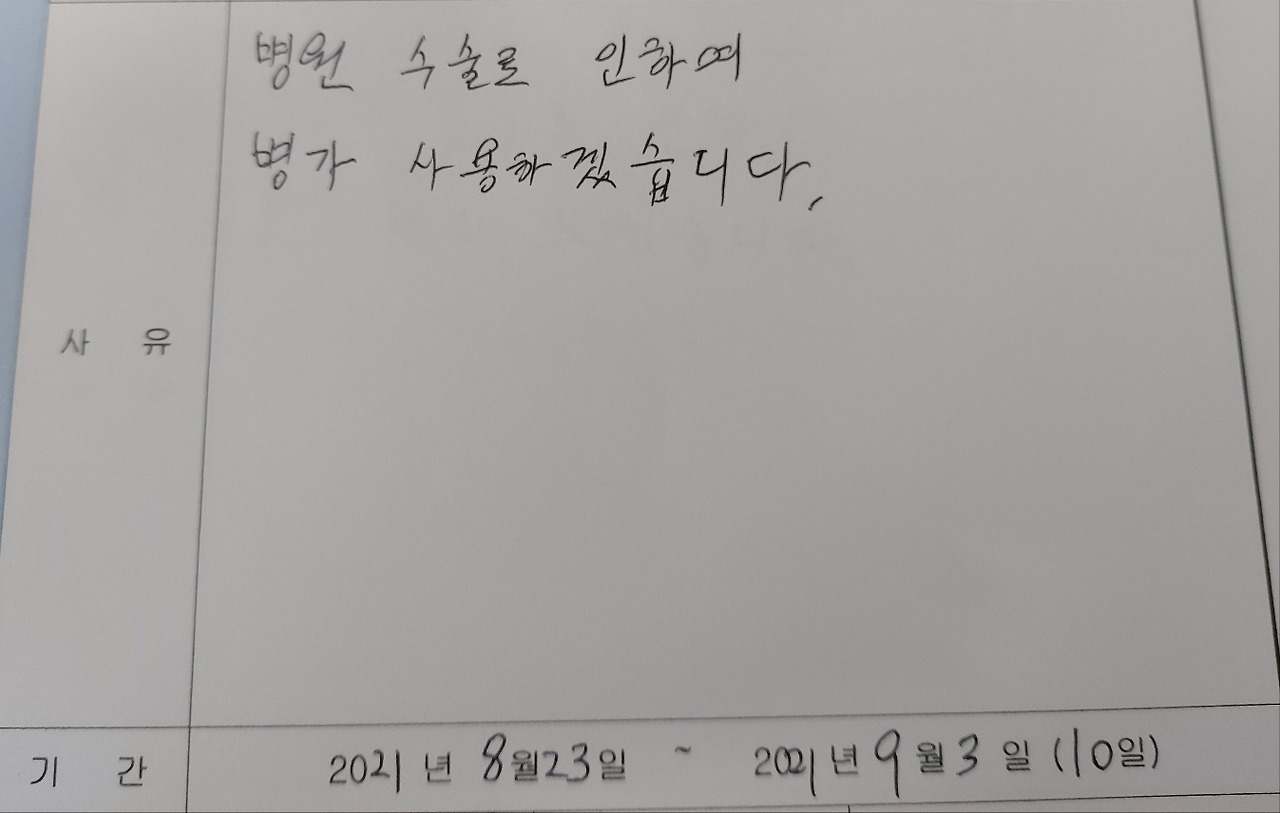 병원 수술로 인하여
병가 사용하겠습니다.
사 유
기 간 2021년 8월23일 ~ 2021년 9월 3일 (10일)